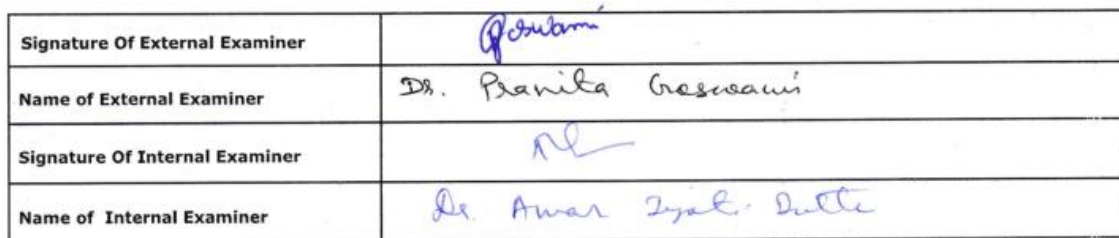 Signature Of External Examiner Goswami
Name of External Examiner Dr. Pranita Goswami
Signature Of Internal Examiner
Name of Internal Examiner Dr. Amar Jyoti Dutta